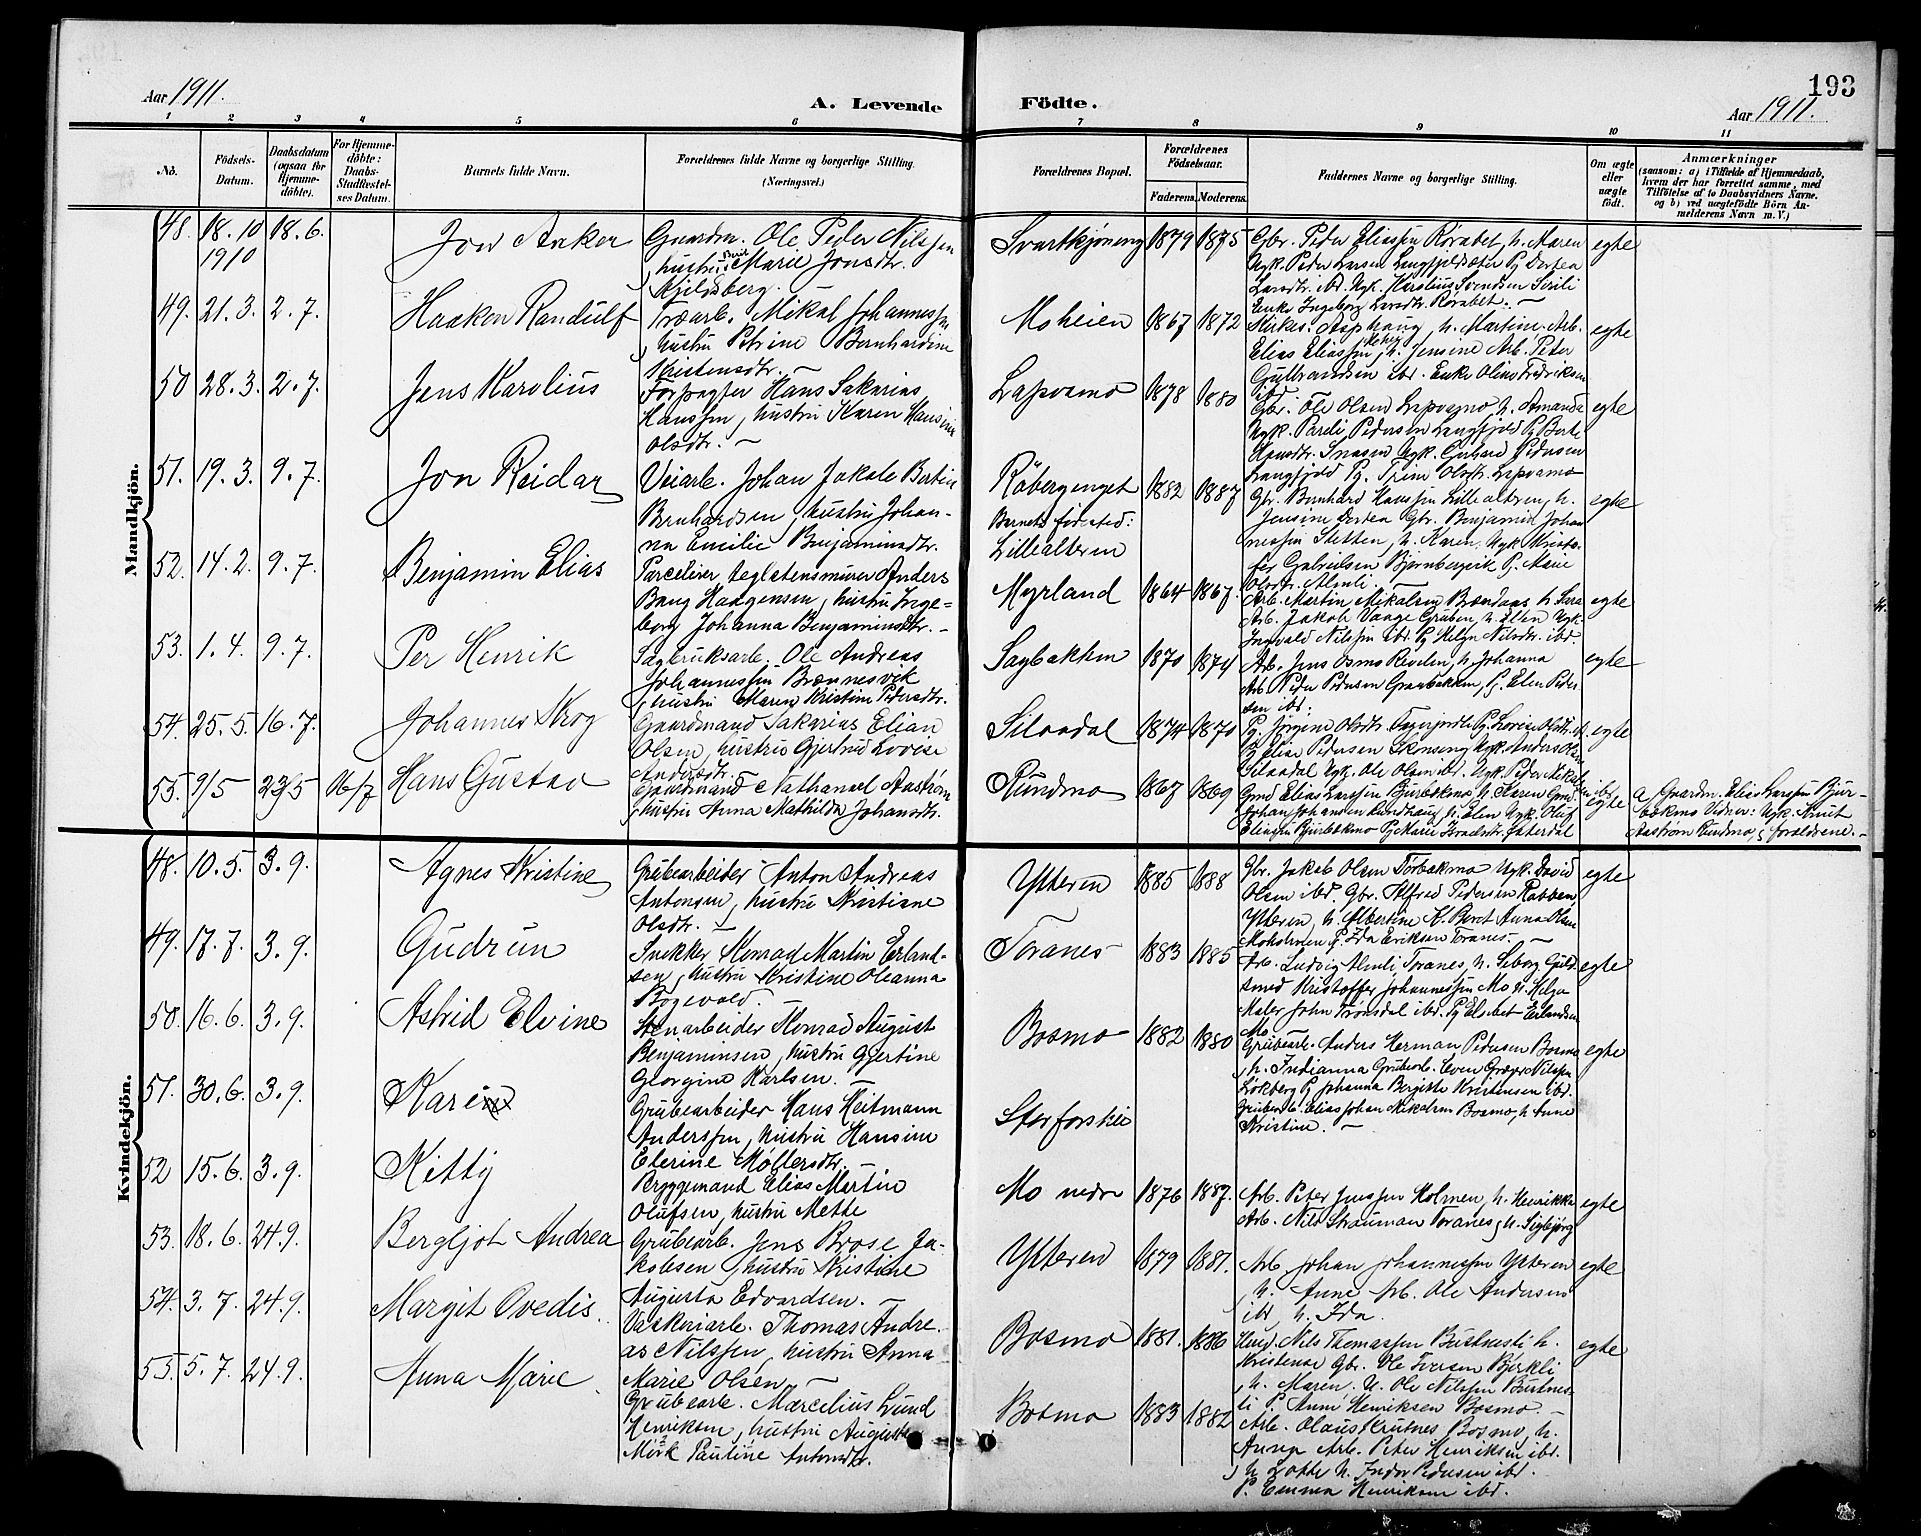 193
Aar 1911.
A. Levende Födte.
Aar 1911.
1 2 3 4 5 6 7 8 9 10 11
No.
Födsels-Datum.
Daabsdatum (ogsaa for Hjemmedöbte).
For Hjemmedöbte: Daabs-Stadfæstelses Datum.
Barnets fulde Navn.
Forældrenes fulde Navne og borgerlige Stilling.
(Næringsvei.)
Forældrenes Bopæl.
Forældrenes Fødselsaar.
Faderens. Moderens.
Faddernes Navne og borgerlige Stilling.
Om ægte eller uægte födt.
Anmærkninger
(saasom: a) i Tilfælde af Hjemmedaab,
hvem der har forrettet samme, med
Tilföielse af to Daabsvidners Navne.
og b) ved uægtefödte Börn Anmelderens Navn m. V.)
Mandkjön.
48. 18.10 1910 18.6. Jon Anker
Gaardm. Ole Peder Nilssen
hustru Marie Jonsdtr.
Kjeldsberg.
Svartkjøneng 1879 1875
Gbr. Peder Eliassen Rørabet, h. Maren
Ugk. Peder Larsen Langfjeldsæter Pg Dortea
Larsdtr. ibd. Ugk. Karolius Svendsen
Enke Ingeborg Larsdtr. Rørabet. —
egte
49. 21.3. 2.7. Haakon Randulf
Træarb. Mikal Johannessen
hustru Petrine Bernhardine
Kristensdtr. —
Moheien 1867 1872
Kirkes. Asphaug, h. Martine. Arb.
Elias Eliassen, h. Jensine Arb. Peter
Gulbrandsen ibd. Enke Oline Fredriksen
ibd.
egte
50 28.3. 2.7. Jens Karolius
Forpagter Hans Sakarias
Hanssen, hustru Karen Hansine
Olsdtr. —
Lapvasmo 1878 1880
Gbr. Ole Olsen Lapvasmo, h. Amanda
Ugk. Pareli Pedersen Langfjeld Pg Berte
Hansdtr. Ugk. Pedersen
Langfjeld Pg. Trine Olsdtr. Lapvasmo
egte
51. 19.3. 9.7. Jon Reidar
Veiarb. Johan Jakob Bertin
Bernhardsen, hustru Johan-
na Emilie Benjaminsdtr.
Røbergenget 1882 1887
Barnets fødested:
Lillealteren
Gbr. Bernhard Hanssen Lillealteren, h.
Jensine Dortea Gbr. Benjamin Johan
nessen Sletten, h. Karen. Ugk. Kristo-
fer Gabrielsen Bjørnbergvik P. Marie
Olsdtr. Almli.
egte
52. 14.2. 9.7. Benjamin Elias
Parcelier, teglstensmurer Anders
Bang Haagensen, hustru Inge-
borg Johanna Benjaminsdtr. —
Myrland 1864 1867.
Arb. Martin Mikalsen h. Sara
Arb. Jakob Vange Gruben, h. Ellen Ugk.
Ingvald Nilssen ibd. Pg Helga Nilsdtr. ibd.
egte
53. 1.4. 9.7. Per Henrik
Sagbruksarb. Ole Andreas
Johannessen Brennesvik
hustru Maren Kristine Pedersdtr.
Sagbakken 1870 1874
Arb. Jens Osmo Revelen, h. Johanna
Arb. Peder Pedersen Granbakken, Pg. Elen Peder
sen ibd:
egte
54. 25.5. 16.7. Johannes Krog
Gaardmand Sakarias Elian
Olsen, hustru Gjertrud Lovise
Andersdtr.
Silaadal 1874 1870
Pg. Jørgine Olsdtr. Pg. Lovise Olsdtr.
Pg Elise Pedersen Skonseng Ugk. Anders
Silaadal Ugk. Ole Olsen ibd. Ugk. Peder
ibd.
egte
55. 9/5 23/5 16/7 Hans Gustav
Gaardmand Nathanael Aastrøm
hustru Anna Mathilde Johansdtr.
Rundmo 1867 1869
Gmd Elias Larssen Bjurbækmo, h. Karen Gmd
Johan Johansen h. Elen Ugk. Oluf
Eliassen Bjurbækmo Pg Marie
egte
a, Gaardm. Elias Larssen Bjur-
bækmo Vidner: Ugk. Knut
Aastrøm Rundmo, & forældrene. —
Kvindekjön.
48. 10.5. 3.9. Agnes Kristine
Grubearbeider Anton Andreas
Antonsen, hustru Kristiane
Olsdtr. —
Ytteren 1885 1888
Gbr. Jakob Olsen Torbækmo Ugk. David
Olsen ibd. Gbr. Alfred Pedersen Rabben
Ytteren, h. Albertine K. Beret Anna Olsen
Moholmen P. Ida Eriksen Toranes. —
egte
49. 17.7. 3.9. Gudrun
Snekker Konrad Martin Erland-
sen, hustru Kristine Oleanna
Bogevold.
Toranes 1883 1885
Arb. Ludvig Almli Toranes, h. Seborg Guld
smed Kristoffer Johannessen Mo h. Helga
Maler John Trønsdal ibd. Pg Elsebet Erlandsen
Mo.
egte
50. 16.6. 3.9. Astrid Elvine
Stenarbeider Konrad August
Benjaminsen, hustru Gjertine
Georgine Karlsen. —
Bosmo 1882 1880
Grubearb. Anders Herman Pedersen Bosmo
h. Indianna Grubearb. Even Nilssen
Løkberg Pg Johanna Bergitte Kristensen ibd.
Grubearb. Elias Johan Mikalsen Bosmo, h. Anne
Kristine. —
egte
51. 30.6. 3.9. Karen
Grubearbeider Hans Heitmann
Anderssen, hustru Hansine
Elerine Møllersdtr.
Storforshei
52 15.6. 3.9. Kitty
Bryggemand Elias Martin
Olufsen, hustru Mette
Mo nedre 1876 1887.
Arb. Peter Jenssen Holmen, h. Henrikke
Arb. Nils Strauman Toranes, h. Sigbjørg
egte
53. 18.6. 24.9. Bergljot Andrea
Grubearb. Jens Brose Ja-
kobsen, hustru Kristine
Augusta Edvardsen. —
Ytteren 1879 1881.
Arb. Johan Johannessen Ytteren
h. Anne Arb. Ole Andersen
ibd. h. Ida.
egte
54. 3.7. 24.9. Margit Ovedis.
Vaskeriarb. Thomas Andre-
as Nilssen, hustru Anna
Marie Olsen. —
Bosmo 1881. 1886
Nils Thomassen Bustnesli h.
Kristense Gbr. Ole Iversen Bjerkli
h. Maren. U. Ole Nilssen Bustnes-
li P. Anne Henriksen Bosmo. —
egte
55. 5.7. 24.9. Anna Marie
Grubearb. Marcelius Lund
Henriksen, hustru Augusta
Mørk Pauline Antonsdtr.
Bosmo 1883 1882
Arb. Olaus Krutnes Bosmo, h.
Arb. Peter Henriksen ibd.
h. Lotte U. Indor Pedersen ibd.
P. Emma Henriksen ibd.